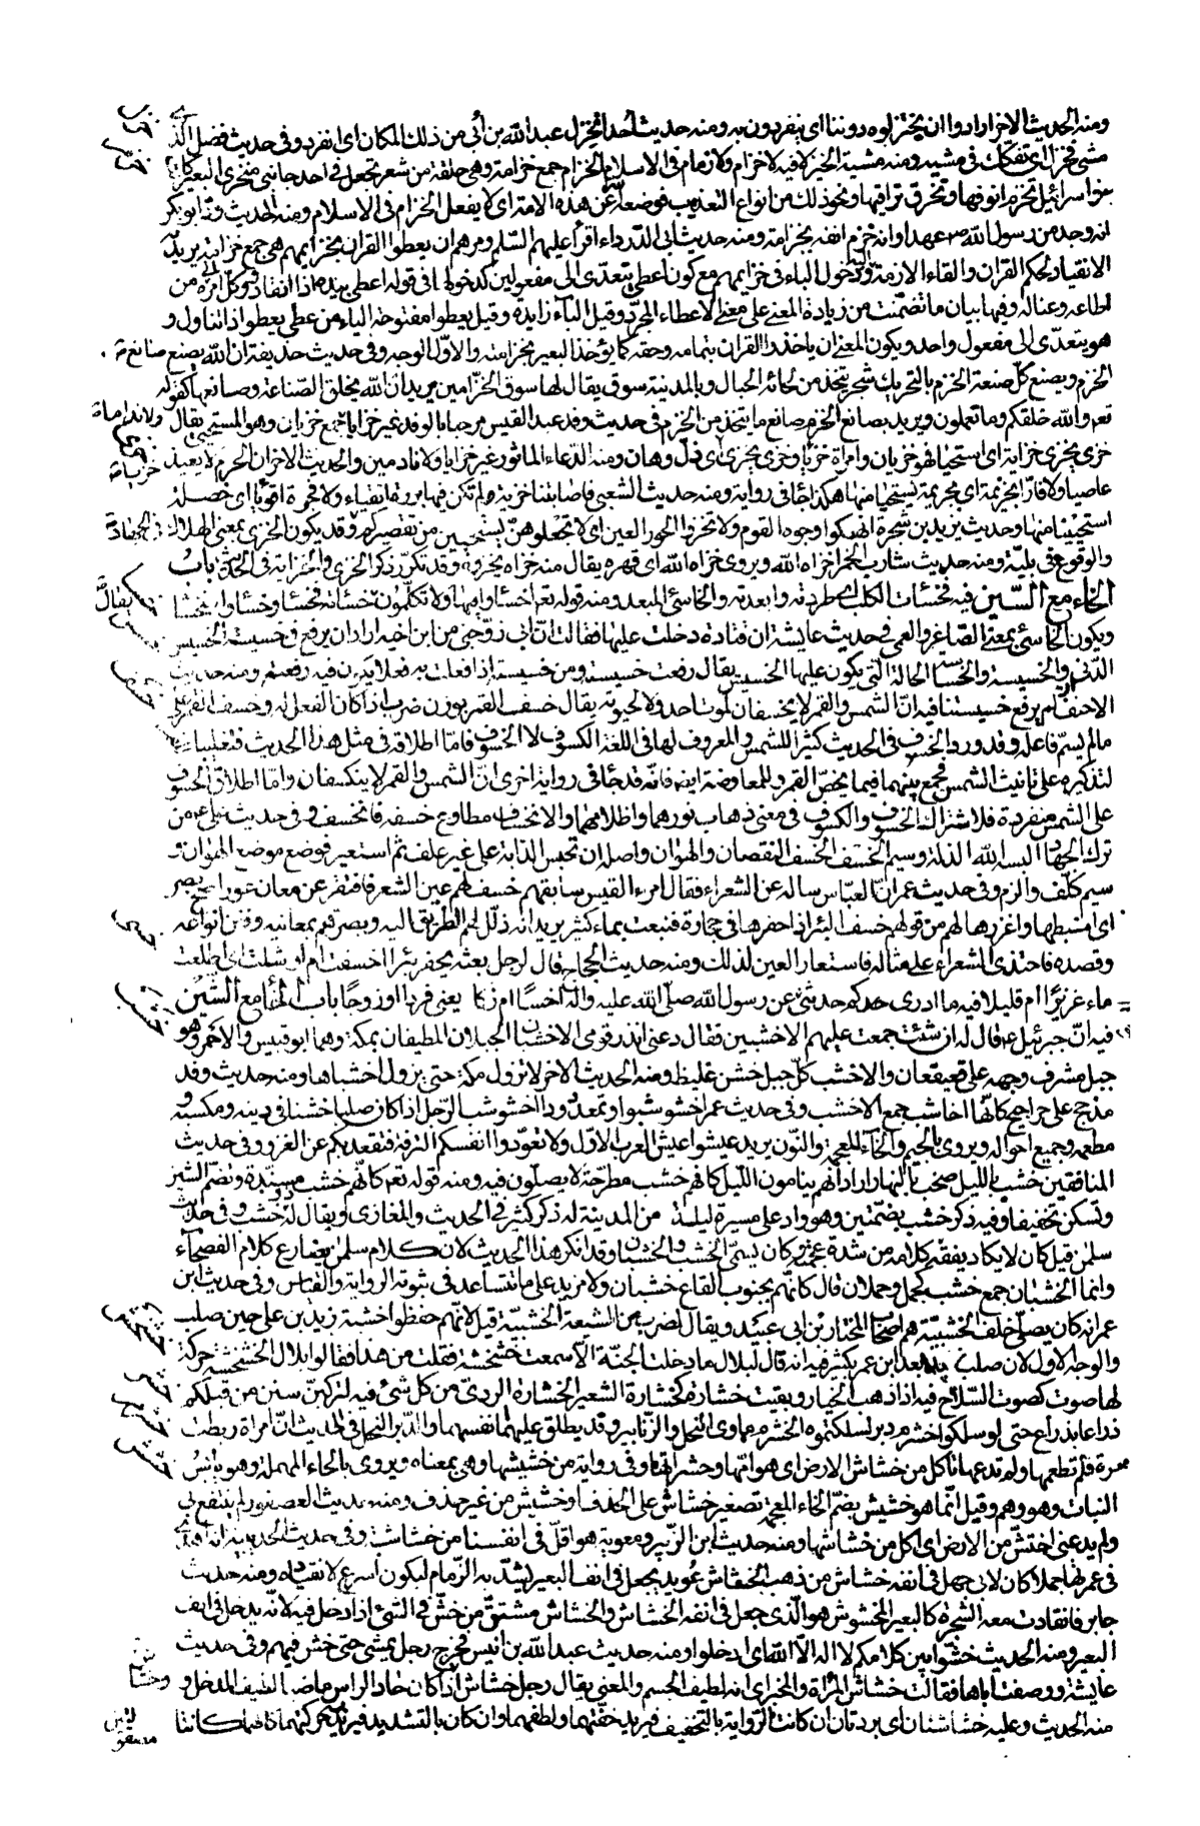 ومنه الحديث الاخر ارادوا ان يختزلوه دوننا اى ينفردون به ومنه حديث احد انخزل عبد الله بن أبي من ذلك المكان اى انفرد وفى حديث فصل الذ
مشى فخزل اى تفكك فى مشيه ومنه مشية الخيزلى فيه لاخزام ولازمام فى الاسلام الخزام جمع خزامة وهى حلقة من شعر تجعل فى احد جانبى منخرى البعير كانت
بنو اسرائيل تخزم انوفها وتخرق تراقيها ونحو ذلك من انواع التعذيب فوضعه الله عن هذه الامة اى لا يفعل الخزام فى الاسلام ومنه الحديث ود ابو بكر
انه وجد من رسول الله ص عهدا وانه خزم انفه بخزامة ومنه حديث ابى الدرداء اقرأ عليهم السلم ومرهم ان يعطوا القران بخزايمهم هى جمع خزامة يريد به
الانقياد لحكم القران والقاء الازمة اليه ودخول الباء فى خزايمهم مع كون اعطى يتعدى الى مفعولين كدخولها فى قوله اعطى بيده اذا انقاد ووكل امره الى من
اطاعه وعنا له وفيها بيان ما تضمنت من زيادة المعنى على معنى الاعطاء المجرد وقيل الباء زايدة وقيل يعطوا مفتوحة الياء من عطى يعطوا اذا تناول و
هو يتعدى الى مفعول واحد ويكون المعنى ان ياخذوا القران بتمامه وحقه كما يؤخذ البعير بخزامته والاول الوجه وفى حديث حذيفة ان الله يصنع صانع
الخزم ويصنع كل صنعة الخزم بالتحريك شجر يتخذ من لحائه الحبال وبالمدينة سوق يقال لها سوق الخزامين يريد ان الله يخلق الصناعة وصانعها كقوله
تعم والله خلقكم وما تعملون ويريد بصانع الخزم صانع ما يتخذ من الخزم فى حديث وفد عبد القيس مرحبا بالوفد غير خزايا جمع خزيان وهو المستحيى يقال ولا ندامة
خزى يخزى خزاية اى استحيا فهو خزيان وامرأة خزيا وخزى يخزى اى ذل وهان ومنه الدعاء الماثور غير خزايا ولا نادمين والحديث الاخر ان الحرم لا يعيذ
عاصيا ولا فارا بخزية اى بجريمة يستحيا منها هكذا جاء فى رواية ومنه حديث الشعبى فاصابتنا خزية لم تكن فيها بررة اتقياء ولا فجرة اقويا اى خصلة
استحيينا منها وحديث يزيد بن شجرة انهكوا وجوه القوم ولا تخزوا الحور العين اى لا تجعلوهن يستحيين من تقصيركم وقد يكون الخزى بمعنى الهلاك فى الجهاد
والوقوع فى بلية ومنه حديث شارب الخمر اخزاه الله ويروى خزاه الله اى قهره يقال منه خزاه يخزوه وقد تكرر ذكر الخزى والخزاية فى الحديث باب
الخاء مع السين فيه فخسات الكلب اى طردته وابعدته والخاسئ المبعد ومنه قوله تعم اخسئوا فيها ولا تكلمون يقال خسأته فخسئ وخسأ وانخسأ
ويكون الخاسئ بمعنى الصاغر القمى فى حديث عايشة ان فتاة دخلت عليها فقالت ان ابى زوجنى من ابن اخيه اراد ان يرفع بى خسيسته الخسيس
الدنى والخسيسة والخساسة الحالة التى يكون عليها الخسيس يقال رفعت خسيسته ومن خسيسته اذا فعلت به فعلا يكون فيه رفعته ومنه حديث
الاحنف ان لم يرفع خسيستنا فيه ان الشمس والقمر لا يخسفان لموت احد ولا لحيوته يقال خسف القمر بوزن ضرب اذا كان الفعل له وخسف القمر على
مالم يسم فاعله وقد ورد الخسوف فى الحديث كثيرا للشمس والمعروف لها فى اللغة الكسوف لا الخسوف فاما اطلاقه فى مثل هذا الحديث فتغليبا
لتذكيره على تانيث الشمس فجمع بينهما فيما يخص القمر وللمعاوضة ايضا فانه قد جاء فى رواية اخرى ان الشمس والقمر لا ينكسفان واما اطلاق الخسوف
على الشمس منفردة فلاشتراك الخسوف والكسوف فى معنى ذهاب نورهما واظلامهما والانخساف مطاوع خسفه فانخسف وفى حديث على ع من
ترك الجهاد البسه الله الذلة وسيم الخسف الخسف النقصان والهوان واصله ان تحبس الدابة على غير علف ثم استعير فوضع موضع الهوان و
سيم كلف والزم وفى حديث عمر ان العباس ساله عن الشعراء فقال امرء القيس سابقهم خسف لهم عين الشعر فافتقر عن معان عور اصح بصر
اى انبطها واغزرها لهم من قولهم خسف البئر اذا حفرها فى حجارة فنبعت بماء كثير يريد انه ذلل لهم الطريق اليه وبصرهم بمعانيه وفنن انواعه
وقصده فاحتذى الشعراء على مثاله فاستعار العين لذلك ومنه حديث الحجاج قال لرجل بعثه يحفر بئرا اخسفت ام اوشلت اى اطلعت
ماء غزيرا ام قليلا فيه ما ادرى كم حدثنى عن رسول الله صلى الله عليه واله اخسا ام زكا يعنى فردا او زوجا باب الخاء مع الشين
فيه ان جبرئيل ع قال له ان شئت جمعت عليهم الاخشبين فقال دعنى انذر قومى الاخشبان الجبلان المطيفان بمكة وهما ابو قبيس والاحمر وهو
جبل مشرف وجهه على قعيقعان والاخشب كل جبل خشن غليظ ومنه الحديث الاخر لا تزول مكة حتى يزول اخشباها ومنه حديث وفد
مذحج على حراجيج كانها اخاشب جمع الاخشب وفى حديث عمر اخشوشبوا وتمعددوا اخشوشب الرجل اذا كان صلبا خشنا فى دينه وملبسه و
مطعمه وجميع احواله ويروى بالجيم والخاء المعجمة والنون يريد عيشوا عيش العرب الاول ولا تعودوا انفسكم الترفه فتقعد بكم عن الغزو وفى حديث
المنافقين خشب بالليل صخب بالنهار اراد انهم ينامون الليل كانهم خشب مطرحة لا يصلون فيه ومنه قوله تعم كانهم خشب مسندة وتضم الشين
وتسكن تخفيفا وفيه ذكر خشب بضمتين وهو واد على مسيرة ليلة من المدينة له ذكر كثير فى الحديث والمغازى ويقال له ذو خشب وفى حديث
سلمن قيل كان لا يكاد يفقه كلامه من شدة عجمته وكان يسمى الخشب والخشبان وقد انكر هذا الحديث لان كلام سلمن يضارع كلام الفصحاء
وانما الخشبان جمع خشب كحمل وحملان قال كانهم بجنوب القاع خشبان ولا مزيد على ما تتساعد فى ثبوته الرواية والقياس وفى حديث ابن
عمر انه كان يصلى خلف الخشبية هم اصحاب المختار بن ابى عبيد ويقال لضرب من الشيعة الخشبية قيل لانهم حفظوا خشبة زيد بن على حين صلب
والوجه الاول لان صلب زيد بعد ابن عمر بكثير فيه انه قال لبلال ما دخلت الجنة الا سمعت خشخشة فقلت من هذا فقالوا بلال الخشخشة حركة
لها صوت كصوت السلاح فيه اذا ذهب الخيار وبقيت خشارة كخشارة الشعير الخشارة الردى من كل شئ فيه لتركبن سنن من قبلكم
ذراعا بذراع حتى لو سلكوا خشرم دبر لسلكتموه الخشرم مأوى النحل والزنابير وقد يطلق عليهما نفسهما والدبر النحل فى الحديث ان امرأة ربطت
هرة فلم تطعمها ولم تدعها تاكل من خشاش الارض اى هوامها وحشراتها وفى رواية من خشيشها وهى بمعناه ويروى بالحاء المهملة وهو يابس
النبات وهو وهم وقيل انما هو خشيش بضم الخاء المعجمة تصغير خشاش على الحذف او خشيش من غير حذف ومنه حديث العصفور لم ينتفع بى
ولم يدعنى اختش من الارض اى اكل من خشاشها ومنه حديث ابن الزبير ومعوية هو اقل فى انفسنا من خشاشة وفى حديث الحديبية انه اهدى
فى عمرتها جملا كان لابى جهل فى انفه خشاش من ذهب الخشاش عويد يجعل فى انف البعير يشد به الزمام ليكون اسرع لانقياده ومنه حديث
جابر فانقادت معه الشجرة كالبعير المخشوش هو الذى جعل فى انفه الخشاش والخشاش مشتق من خش فى الشئ اذا دخل فيه لانه يدخل فى انف
البعير ومنه الحديث خشوا بين كلامكم لا اله الا الله اى ادخلوا ومنه حديث عبد الله بن انيس فخرج رجل يمشى حتى خش فيهم وفى حديث
عايشة ووصفت اباها فقالت خشاش المرأة والمخبر اى انه لطيف الجسم والمعنى يقال رجل خشاش اذا كان حاد الراس ماضيا لطيف المدخل و
منه الحديث وعليه خشاشتان اى بردتان ان كانت الرواية بالتخفيف فيريد خفتهما ولطفهما وان كان بالتشديد فيريد حركتهما كانهما كانتا